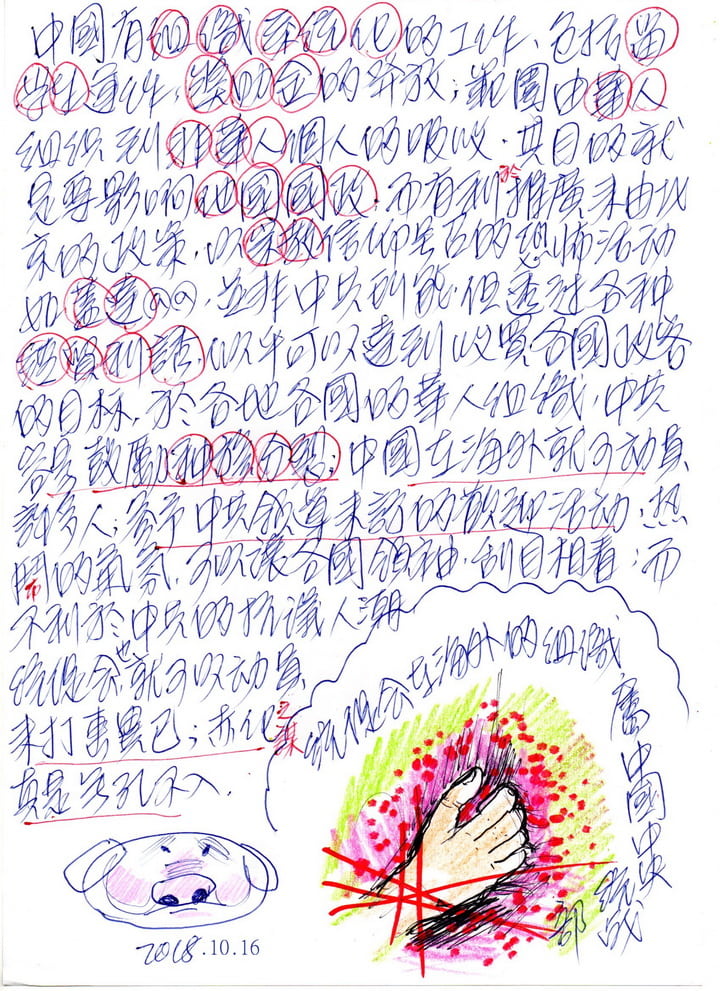 中國有組織系統化的工作、包括留
學生事件,獎助金的發放;範圍由華人
組織到非華人個人的吸收.其目的就
是要影响他國國政.而有利於推廣來由北
京的政策,以宗教信仰是否的恐怖活動
如蓋達,並非中共到能.但透過各種
利誘,以乎可以達到收買各國政客
的目标,於各地各國的華人組織,中共
皆是鼓勵神隆分裂;中國在海外就可動員
許多人;參予中共領導來訪的歡迎活動;熱
鬧的氣氛,可以讓各國領袖,刮目相看;而
不利於中共的抗議人潮
統促会也就可以動員
來打擊異己;赤化之藥
真是無孔不入.
統促会在海外的組織
屬中國中央
統战
部
2018.10.16